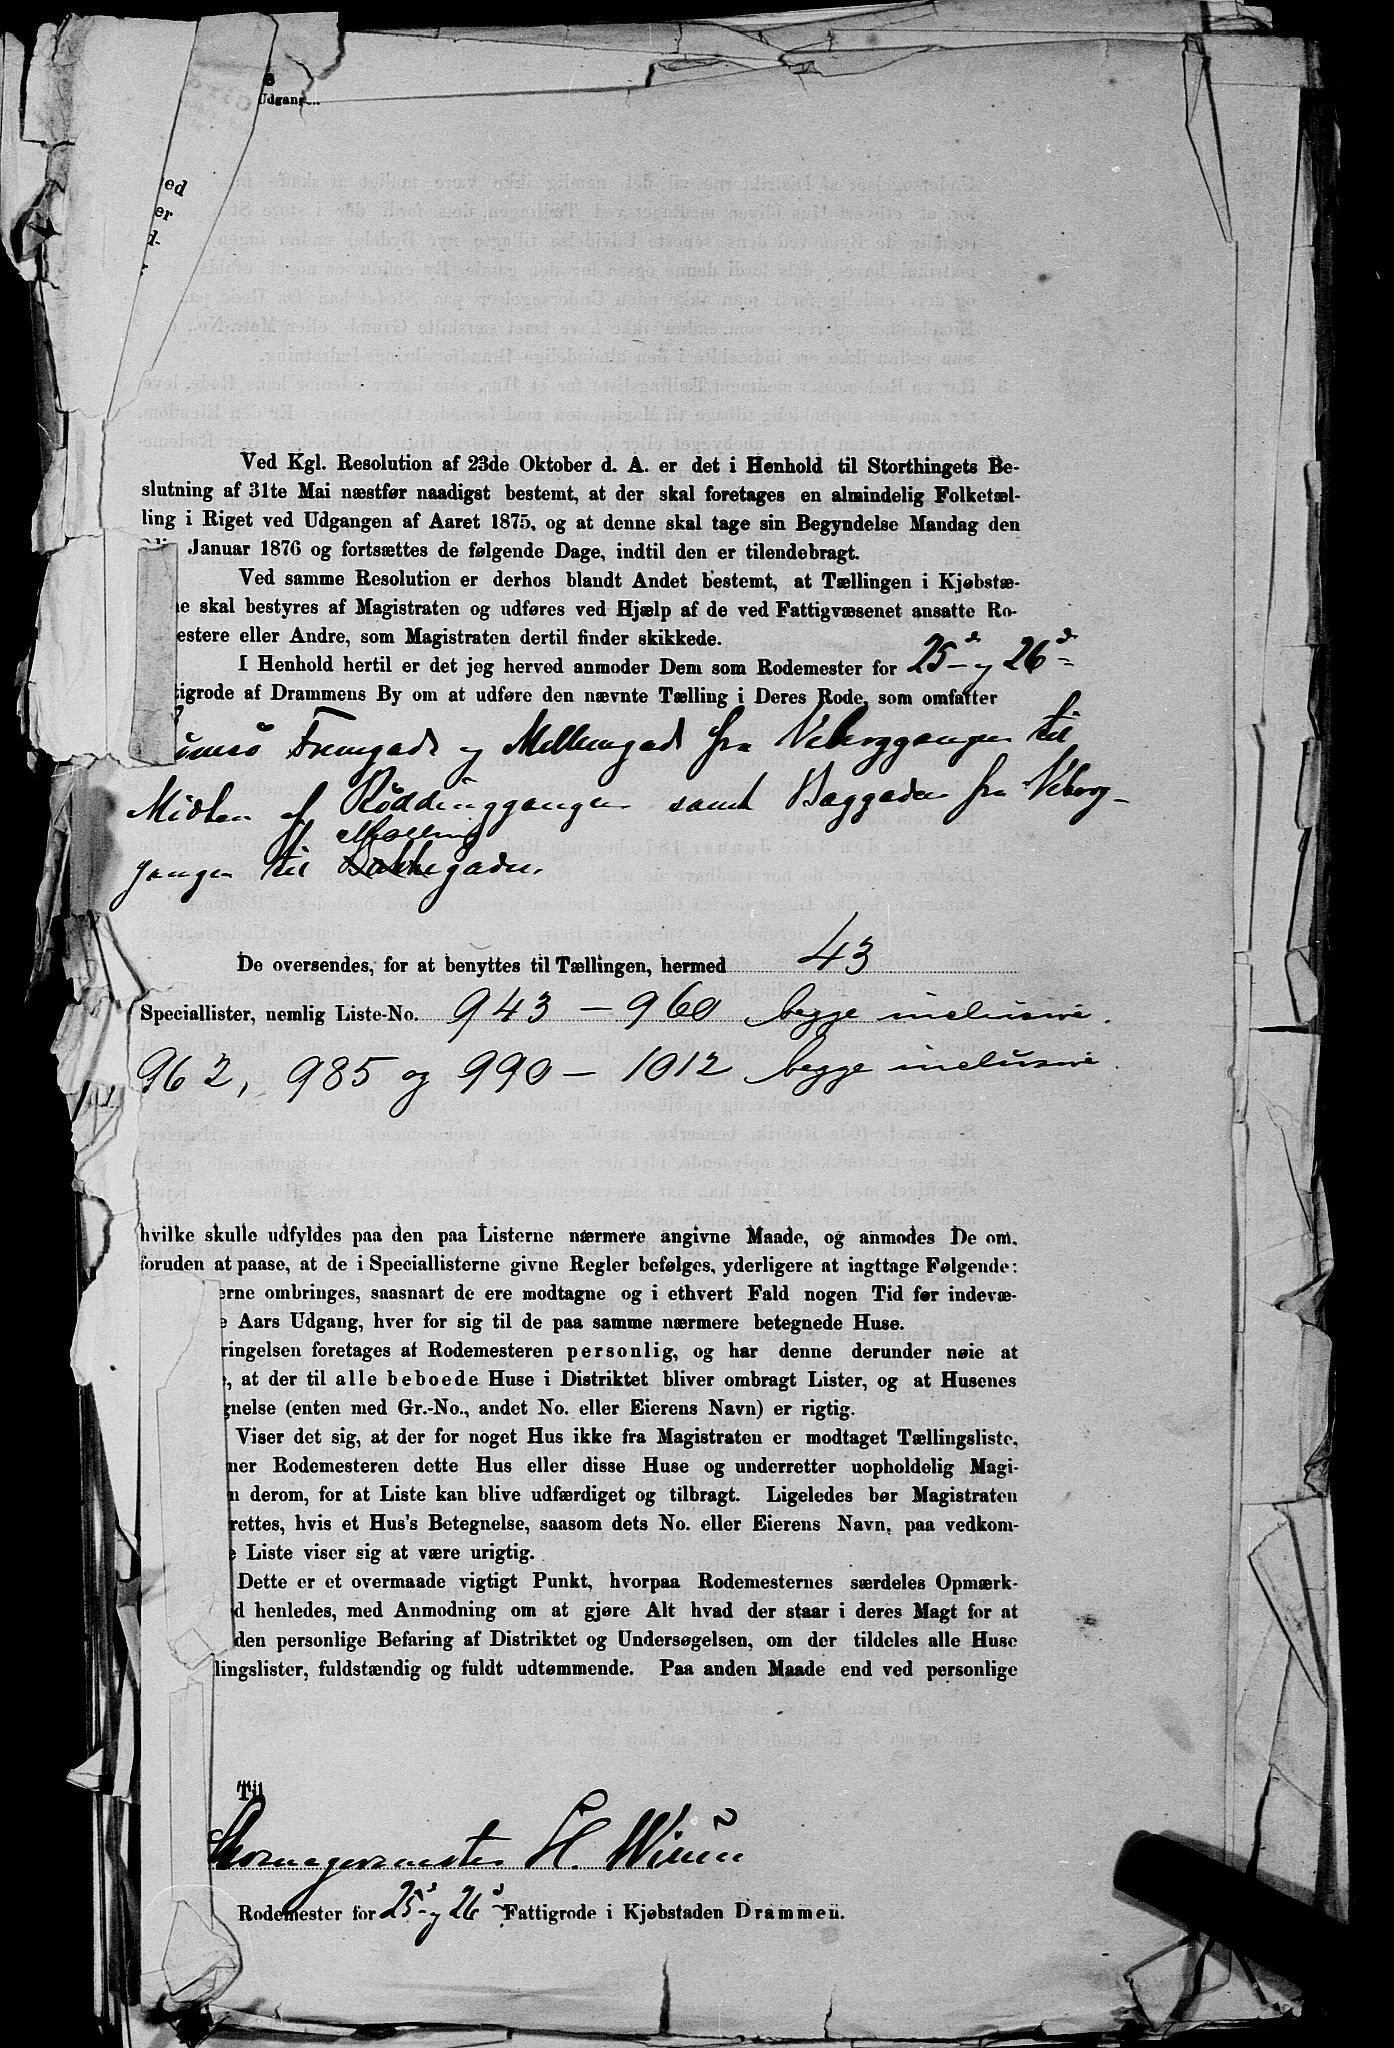 Udgang
ed
er
d-
Ved Kgl. Resolution af 23de Oktober d. A. er det i Henhold til Storthingets Be-
slutning af 31te Mai næstfør naadigst bestemt, at der skal foretages en almindelig Folketæl-
ling i Riget ved Udgangen af Aaret 1875, og at denne skal tage sin Begyndelse Mandag den
Januar 1876 og fortsættes de følgende Dage, indtil den er tilendebragt.
Ved samme Resolution er derhos blandt Andet bestemt, at Tællingen i Kjøbstæ-
ne skal bestyres af Magistraten og udføres ved Hjælp af de ved Fattigvæsenet ansatte Ro-
estere eller Andre, som Magistraten dertil finder skikkede.
I Henhold hertil er det jeg herved anmoder Dem som Rodemester for 25d og 26d
tigrode af Drammens By om at udføre den nævnte Tælling i Deres Rode, som omfatter
Fremgade og Mellemgade fra Viborggangen til
Midten af Røddinggangen samt Baggaden fra Viborg-
gangen til Mølling
gaden.
De oversendes, for at benyttes til Tællingen, hermed 43
Speciallister, nemlig Liste-No. 943 – 960 begge inclusive.
962, 985 og 990 – 1012 begge inclusive.
hvilke skulle udfyldes paa den paa Listerne nærmere angivne Maade, og anmodes De om,
foruden at paase, at de i Speciallisterne givne Regler befølges, yderligere at iagttage Følgende:
erne ombringes, saasnart de ere modtagne og i ethvert Fald nogen Tid før indevæ-
e Aars Udgang, hver for sig til de paa samme nærmere betegnede Huse.
ringelsen foretages af Rodemesteren personlig, og har denne derunder nøie at
, at der til alle beboede Huse i Distriktet bliver ombragt Lister, og at Husenes
gnelse (enten med Gr.-No., andet No. eller Eierens Navn) er rigtig.
Viser det sig, at der for noget Hus ikke fra Magistraten er modtaget Tællingsliste,
ner Rodemesteren dette Hus eller disse Huse og underretter uopholdelig Magi-
n derom, for at Liste kan blive udfærdiget og tilbragt. Ligeledes bør Magistraten
rettes, hvis et Hus's Betegnelse, saasom dets No. eller Eierens Navn, paa vedkom-
e Liste viser sig at være urigtig.
Dette er et overmaade vigtigt Punkt, hvorpaa Rodemesternes særdeles Opmærk-
d henledes, med Anmodning om at gjøre Alt hvad der staar i deres Magt for at
den personlige Befaring af Distriktet og Undersøgelsen, om der tildeles alle Huse
lingslister, fuldstændig og fuldt udtømmende. Paa anden Maade end ved personlige
Til
Skomagermester H. Wiun
Rodemester for 25d og 26d Fattigrode i Kjøbstaden Drammen.